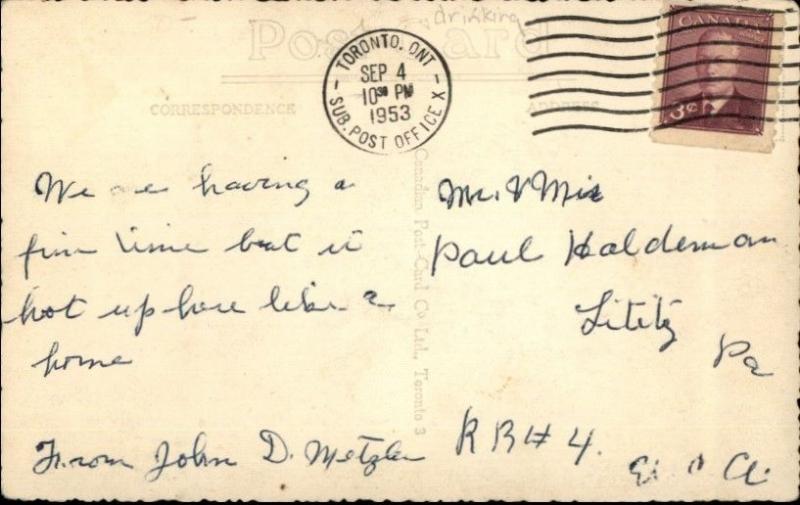 drinking
Post Card
TORONTO, ONT
SEP 4
10 30 PM
1953
SUB. POST OFFICE X
CANADA
3¢
CORRESPONDENCE
ADDRESS
We are having a
fine time but it
hot up here like a
home
From John D. Metzler
Canadian Post Card Co Ltd., Toronto 3
Mr. & Mrs
Paul Haldeman
Lititz
Pa
R R # 4.